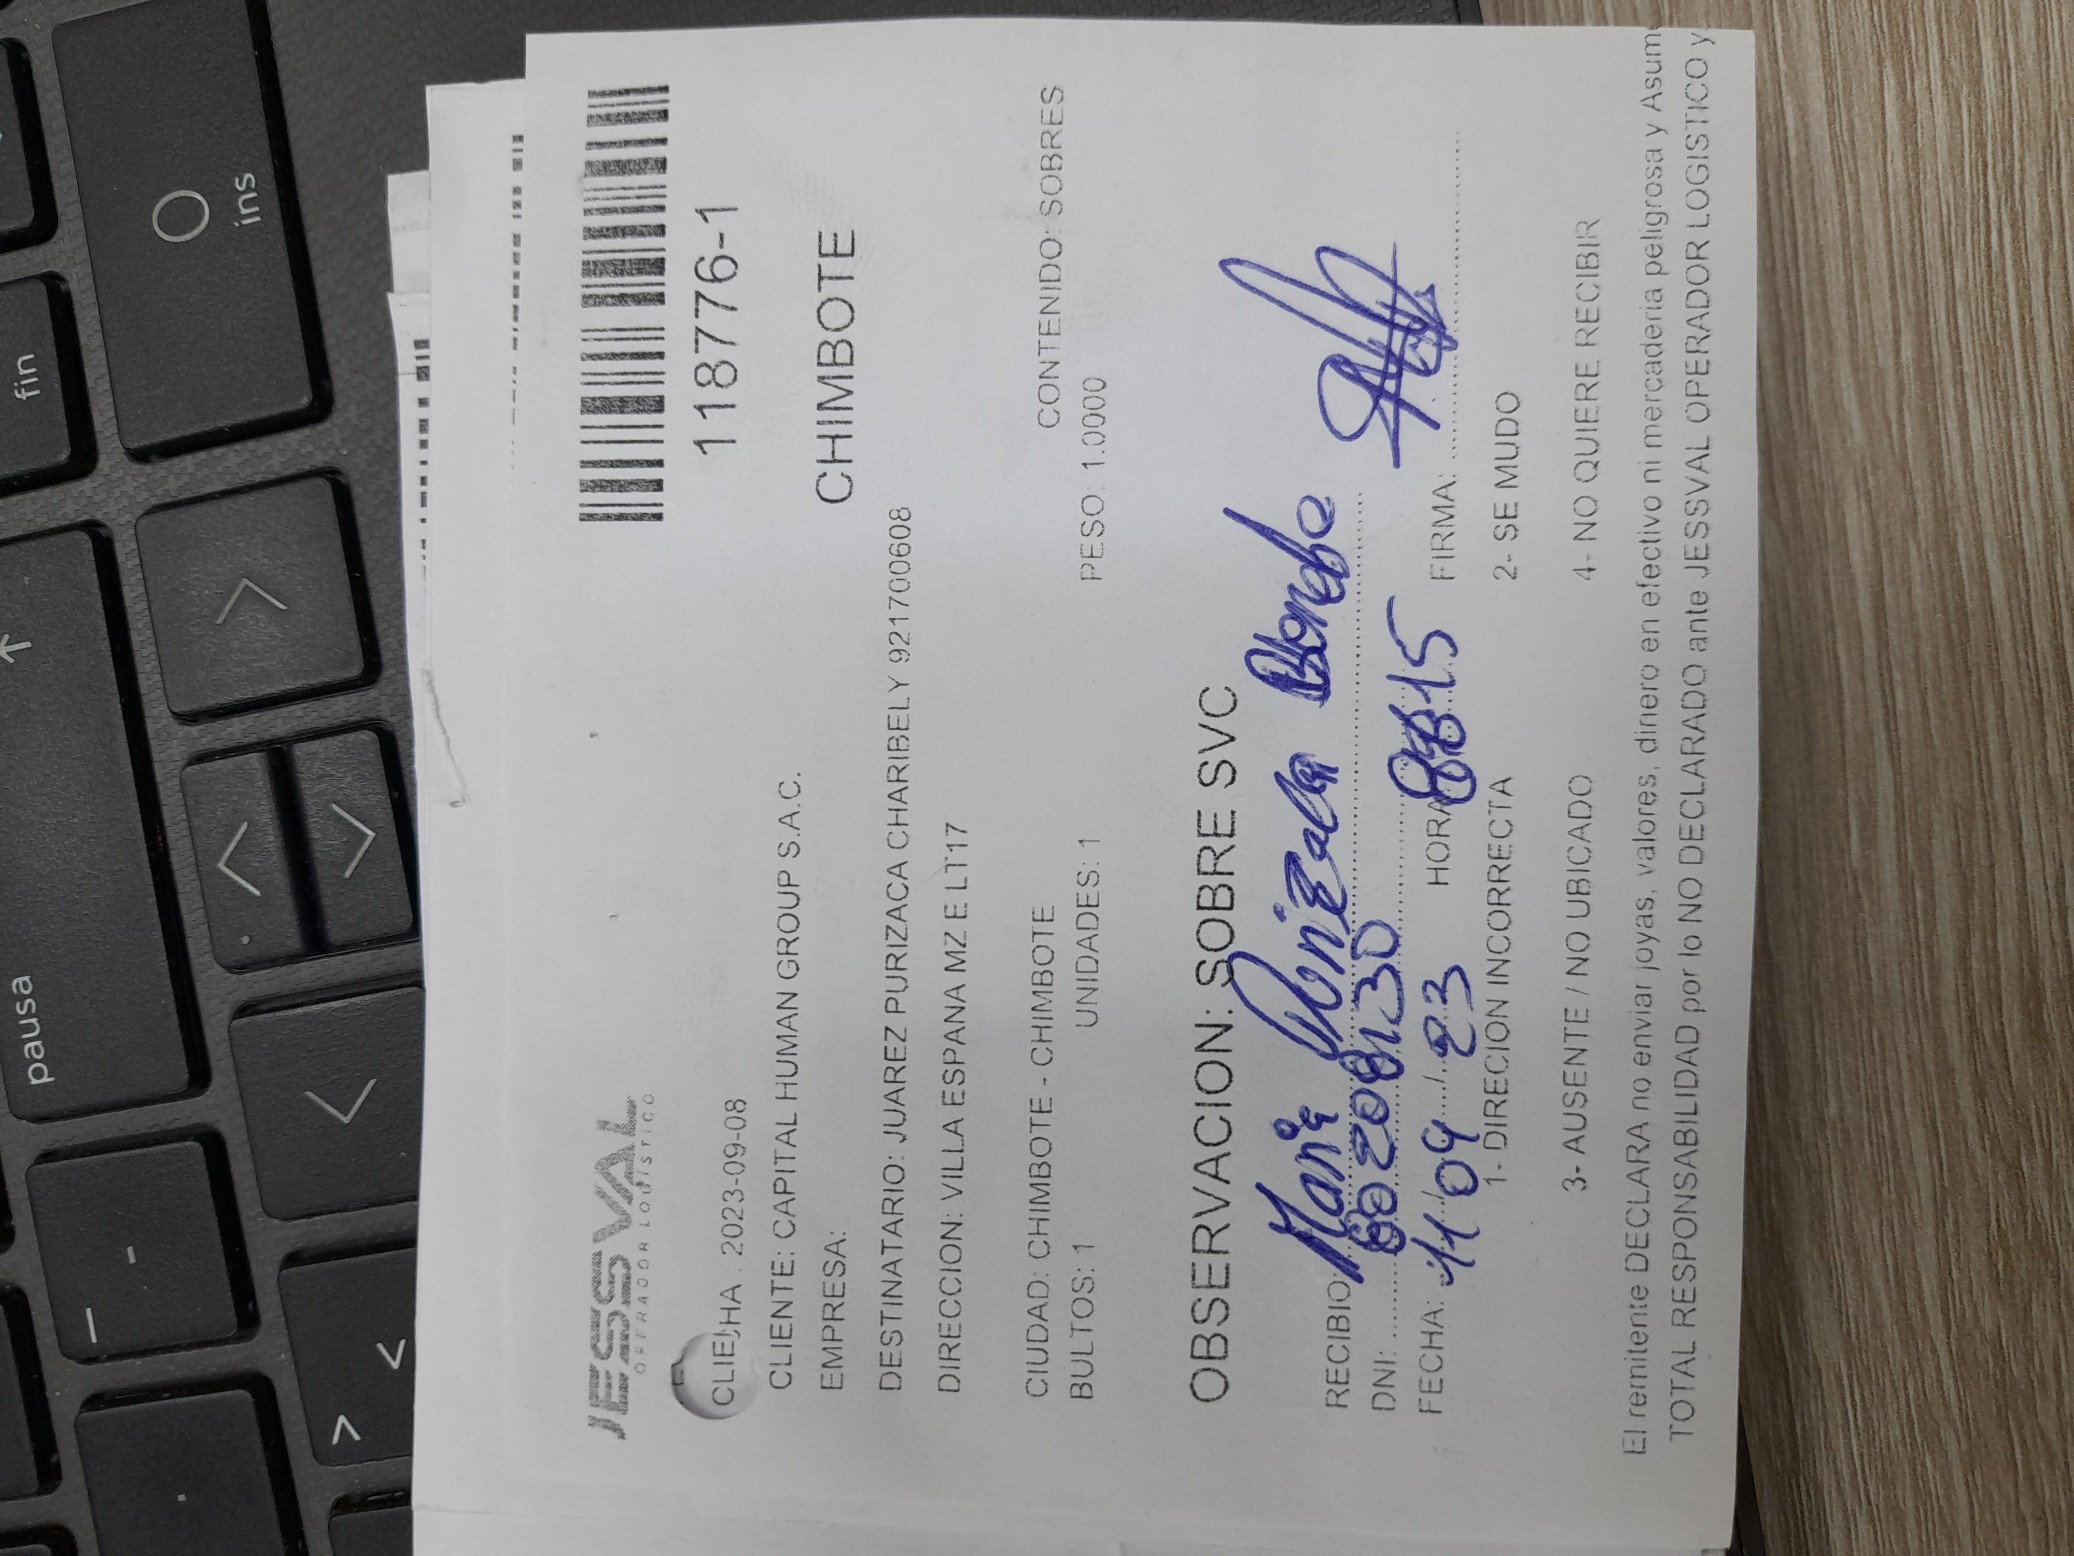 pausa
fin
ins
JESSVAL
OPERADOR LOGÍSTICO
118776-1
CLIE
HA . 2023-09-08
CLIENTE: CAPITAL HUMAN GROUP S.A.C.
EMPRESA:
CHIMBOTE
DESTINATARIO: JUAREZ PURIZACA CHARIBELY 921700608
DIRECCION: VILLA ESPANA MZ E LT17
CIUDAD: CHIMBOTE - CHIMBOTE
CONTENIDO: SOBRES
BULTOS: 1 UNIDADES: 1 PESO: 1.0000
OBSERVACION: SOBRE SVC
RECIBIO: Maria
DNI: 80208130
FECHA: 11/09/23 HORA: FIRMA:
1- DIRECION INCORRECTA 2- SE MUDO
3- AUSENTE / NO UBICADO 4- NO QUIERE RECIBIR
El remitente DECLARA no enviar joyas, valores, dinero en efectivo ni mercaderia peligrosa y Asum
TOTAL RESPONSABILIDAD por lo NO DECLARADO ante JESSVAL OPERADOR LOGISTICO y